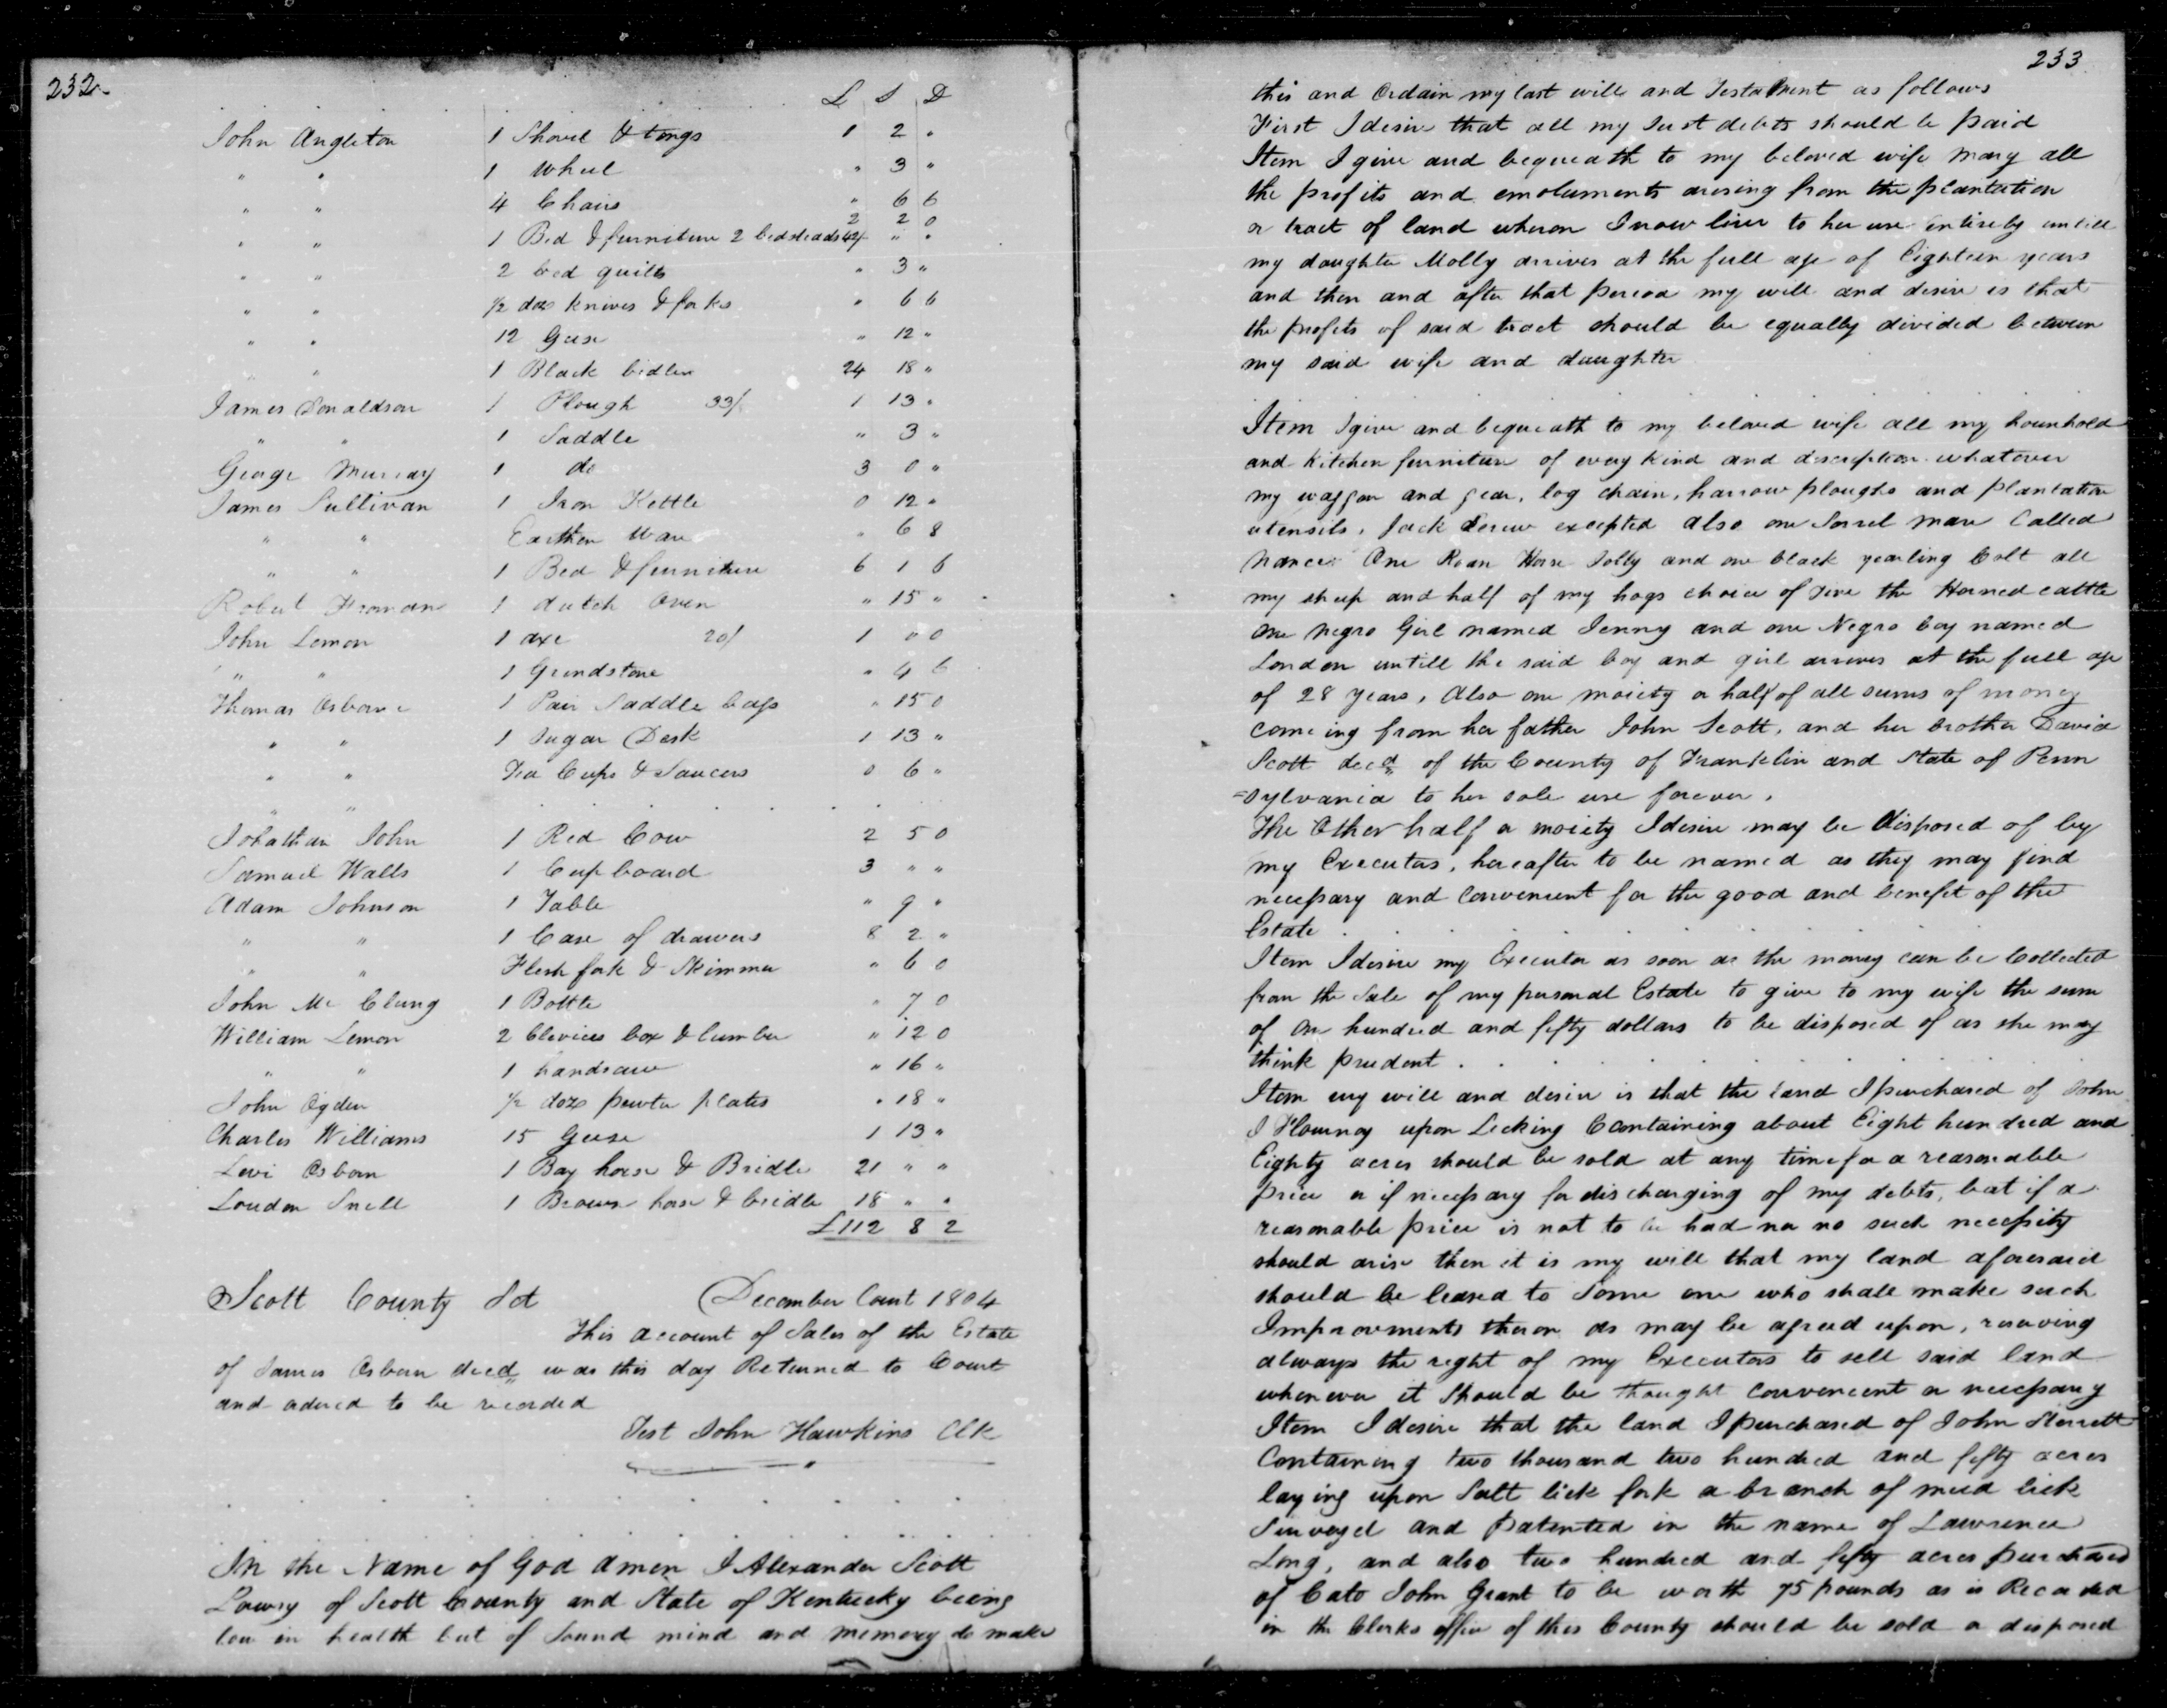 232
L S D
John Angleton 1 Shovel & tongs 1 2 "
" " 1 Wheel " 3 "
" " 4 Chairs " 6 6
" " 1 Bed & furniture 2 bedsteads 42/ 2 2 0
" " 2 bed quilts " 3 "
" " 1/2 doz knives & forks " 6 6
" " 12 Geese " 12 "
" " 1 Black 24 18 "
James Donaldson 1 Plough 33/ 1 13 "
" " 1 Saddle " 3 "
George Murray 1 do 3 0 "
James Sullivan 1 Iron Kettle 0 12 "
" " Earthen Ware " 6 8
" " 1 Bed & furniture 6 1 6
Robert Froman 1 dutch Oven " 15 "
John Lemon 1 axe 20/ 1 0 0
" " 1 Grindstone " 4 6
Thomas Osborne 1 Pair Saddle bags " 15 0
" " 1 Sugar Desk 1 13 "
" " Tea Cups & Saucers 0 6 "
" "
Johathan John 1 Red Cow 2 5 0
Samuel Walls 1 Cupboard 3 " "
Adam Johnson 1 Table " 9 "
" " 1 Case of drawers 8 2 "
" " Flesh fork & Skimmer " 6 0
John Mc Clung 1 Bottle " 7 0
William Lemon 2 Clevices box & lumber " 12 0
" " 1 handsaw " 16 "
John Ogden 1/2 doz pewter plates " 18 "
Charles Williams 15 Geese 1 13 "
Levi Osborn 1 Bay horse & Bridle 21 " "
Loudon Snell 1 Brown horse & bridle 18 " "
£112 8 2
Scott County Sct December Court 1804
This account of Sales of the Estate
of James Osborn decd was this day Returned to Court
and ordered to be recorded
Test John Hawkins Clk
In the Name of God amen I Alexander Scott
Lowry of Scott County and State of Kentucky being
low in health but of Sound mind and memory do make
233
this and Ordain my last will and Testament as follows
First I desire that all my Just debts should be paid
Item I give and bequeath to my beloved wife Mary all
the profits and emoluments arising from the plantation
or tract of land wheron I now live to her use entirely untill
my daughter Molly arrives at the full age of Eighteen years
and then and after that period my will and desire is that
the profits of said tract should be equally divided between
my said wife and daughter
Item I give and bequeath to my beloved wife all my houshold
and Kitchen furniture of every kind and description whatever
my waggon and gear, log chain, harrow ploughs and plantation
utensils, Jack Screw excepted also one Sorrel mare Called
Nance One Roan Horse Jolly and one black yearling Colt all
my sheep and half of my hogs choice of five the Horned cattle
one negro Girl named Jenny and one Negro boy named
London untill the said boy and girl arrives at the full age
of 28 years, Also one moiety or half of all sums of money
comeing from her father John Scott, and her brother David
Scott decd of the County of Franklin and State of Penn
=sylvania to her sole use forever.
The Other half or moiety I desire may be disposed of by
my Executors, hereafter to be named as they may find
necessary and convenient for the good and benefit of the
Estate
Item I desire my Executor as soon as the money can be Collected
from the Sale of my personal Estate to give to my wife the sum
of one hundred and fifty dollars to be disposed of as she may
think prudent
Item my will and desire is that the land I purchased of John
J Flournoy upon Licking Containing about Eight hundred and
Eighty acres should be sold at any time for a reasonable
price or if necessary for discharging of my debts, but if a
reasonable price is not to be had nor no such necessity
should arise then it is my will that my land aforesaid
should be leased to Some one who shall make such
Improvements theron as may be agreed upon, reserving
always the right of my Executors to sell said land
whenever it should be thought convenient or necessary
Item I desire that the land I purchased of John Sterrett
Containing two thousand two hundred and fifty acres
laying upon Salt lick fork a branch of mud lick
Surveyed and Patented in the name of Lawrence
Long, and also two hundred and fifty acres purchased
of Cato John Grant to be worth 75 pounds as is Recorded
in the Clerks office of this County should be sold or disposed